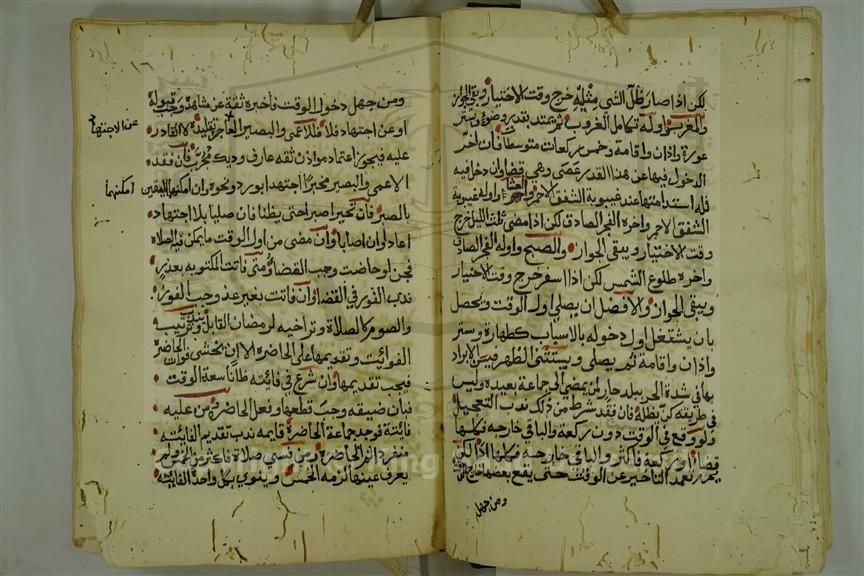 لكن اذا صار ظل الشي مثليه خرج وقت الاختيار وبقي الجواز
والمغرب واوله تكامل الغروب ثم يمتد بقدر وضوء وستر
عورة واذان واقامة وخمس ركعات متوسطات فان اخر
الدخول فيها عن هذا القدر عصى وهي قضا وان دخل فيه
فله استدامتها عند غيبوبة الشفق الاحمر والعشا واوله غيبوبة
الشفق الاحمر واخره الفجر الصادق لكن اذا مضى ثلث الليل خرج
وقت الاختيار ويبقى الجواز والصبح واوله الفجر الصادق
واخره طلوع الشمس لكن اذا اسفر خرج وقت الاختيار
ويبقى الجواز والافضل ان يصلي اول الوقت وتحصل
بان يشتغل اول دخوله بالاسباب كطهارة وستر
واذان واقامة ثم يصلي ويستثنى الظهر فيسن الابراد
بها في شدة الحر ببلد حار لمن يمضي الى جماعة بعيدة وليس
في طريقه كن يظله فان فقد شرط من ذلك ندب التعجيل
ولو وقع في الوقت دون ركعة والباقي خارجه فكلها
قضا او ركعة فاكثر والباقي خارجه فكلها ادا لكن
يحرم تعمد التاخير عن الوقت حتى يقع بعضها خارج
ومن جهل
١٦
ومن جهل دخول الوقت فاخبره ثقة عن مشاهدة وجب قبوله
او عن اجتهاد فلا فللاعمى والبصير العاجز تقليده لا القادر
عن الاجتهاد
عليه فيجوز اعتماد موذن ثقة عارف وديك مجرب فان فقد
الاعمى والبصير مخبرا اجتهد ابورد ونحوه وان امكنهما اليقين
امكنهما
بالصبر فان تحير اصبر احتى يظنا فان صليا بلا اجتهاد
اعادا وان اصابا وان مضى من اول الوقت ما يمكن فيه الصلاة
فجن او حاضت وجب القضا ومتى فاتت المكتوبة بعذر
ندب الفور في القضا وان فاتت بغير عذر وجب الفور
والصوم كالصلاة وتراخيه لرمضان القابل ويندب ترتيب
الفوايت وتقديمها على الحاضرة الا ان يخشى فوات الحاضرة
فيجب تقديمها وان شرع في فايتة ظانا سعة الوقت
فبان ضيقه وجب قطعها وفعل الحاضرة ومن عليه
فايتة فوجد جماعة الحاضرة قايمة ندب تقديم الفايتة
منفردا ثم الحاضرة ومن نسي صلاة فاكثر من الخمس ولم
يعرف عينها لزمه الخمس وينوي بكل واحدة الفايتة